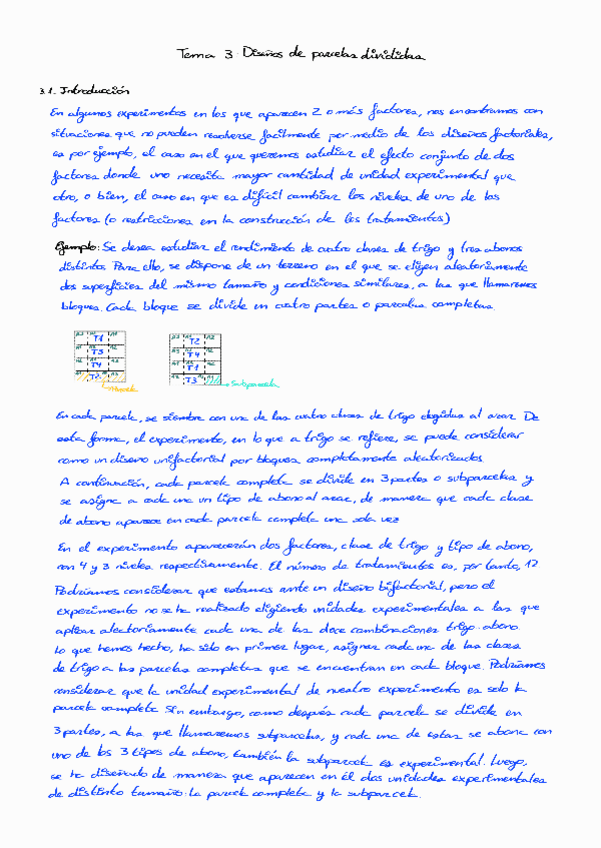 Tema 3: Diseños de parcelas divididas
3.1. Introducción
En algunos experimentos en los que aparecen 2 o más factores, nos encontramos con
situaciones que no pueden resolverse facilmente por medio de los diseños factoriales,
es por ejemplo, el caso en el que queremos estudiar el efecto conjunto de dos
factores donde uno necesita mayor cantidad de unidad experimental que
otro, o bien, el caso en que es difícil cambiar los niveles de uno de los
factores (o restricciones en la construcción de los tratamientos)
Ejemplo: Se desea estudiar el rendimiento de cuatro clases de trigo y tres abonos
distintos. Para ello, se dispone de un terreno en el que se eligen aleatoriamente
dos superficies del mismo tamaño y condiciones similares, a las que llamaremos
bloques. Cada bloque se divide en cuatro partes o parcelas completas.
T1 T2
T3 T4
T4 T1
T2 T3
Parcela
Subparcela
En cada parcela, se siembra con una de las cuatro clases de trigo elegidas al azar. De
esta forma, el experimento, en lo que a trigo se refiere, se puede considerar
como un diseño unifactorial por bloques completamente aleatorizados.
A continuación, cada parcela completa se divide en 3 partes o subparcelas y
se asigna a cada una un tipo de abono al azar, de manera que cada clase
de abono aparece en cada parcela completa una sola vez
En el experimento aparecerán dos factores, clase de trigo y tipo de abono,
con 4 y 3 niveles respectivamente. El número de tratamientos es, por tanto, 12
Podríamos considerar que estamos ante un diseño bifactorial, pero el
experimento no se ha realizado eligiendo unidades experimentales a las que
aplicar aleatoriamente cada una de las doce combinaciones trigo-abono.
Lo que hemos hecho, ha sido en primer lugar, asignar cada una de las clases
de trigo a las parcelas completas que se encuentran en cada bloque. Podríamos
considerar que la unidad experimental de nuestro experimento es solo la
parcela completa. Sin embargo, como después cada parcela se divide en
3 partes, a las que llamaremos subparcelas, y cada una de estas se abona con
uno de los 3 tipos de abono, también la subparcela es experimental. Luego,
se ha diseñado de manera que aparecen en él dos unidades experimentales
de distinto tamaño: la parcela completa y la subparcela.